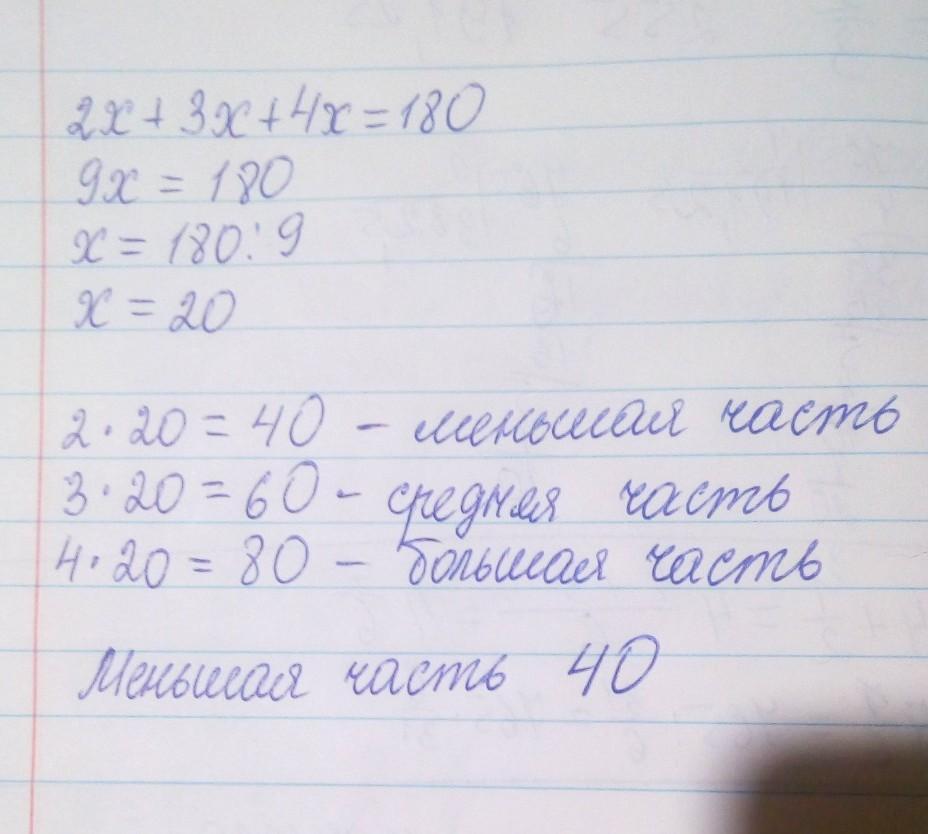 2x + 3x + 4x = 180
9x = 180
x = 180 : 9
x = 20
2 · 20 = 40 – меньшая часть
3 · 20 = 60 – средняя часть
4 · 20 = 80 – большая часть
Меньшая часть 40